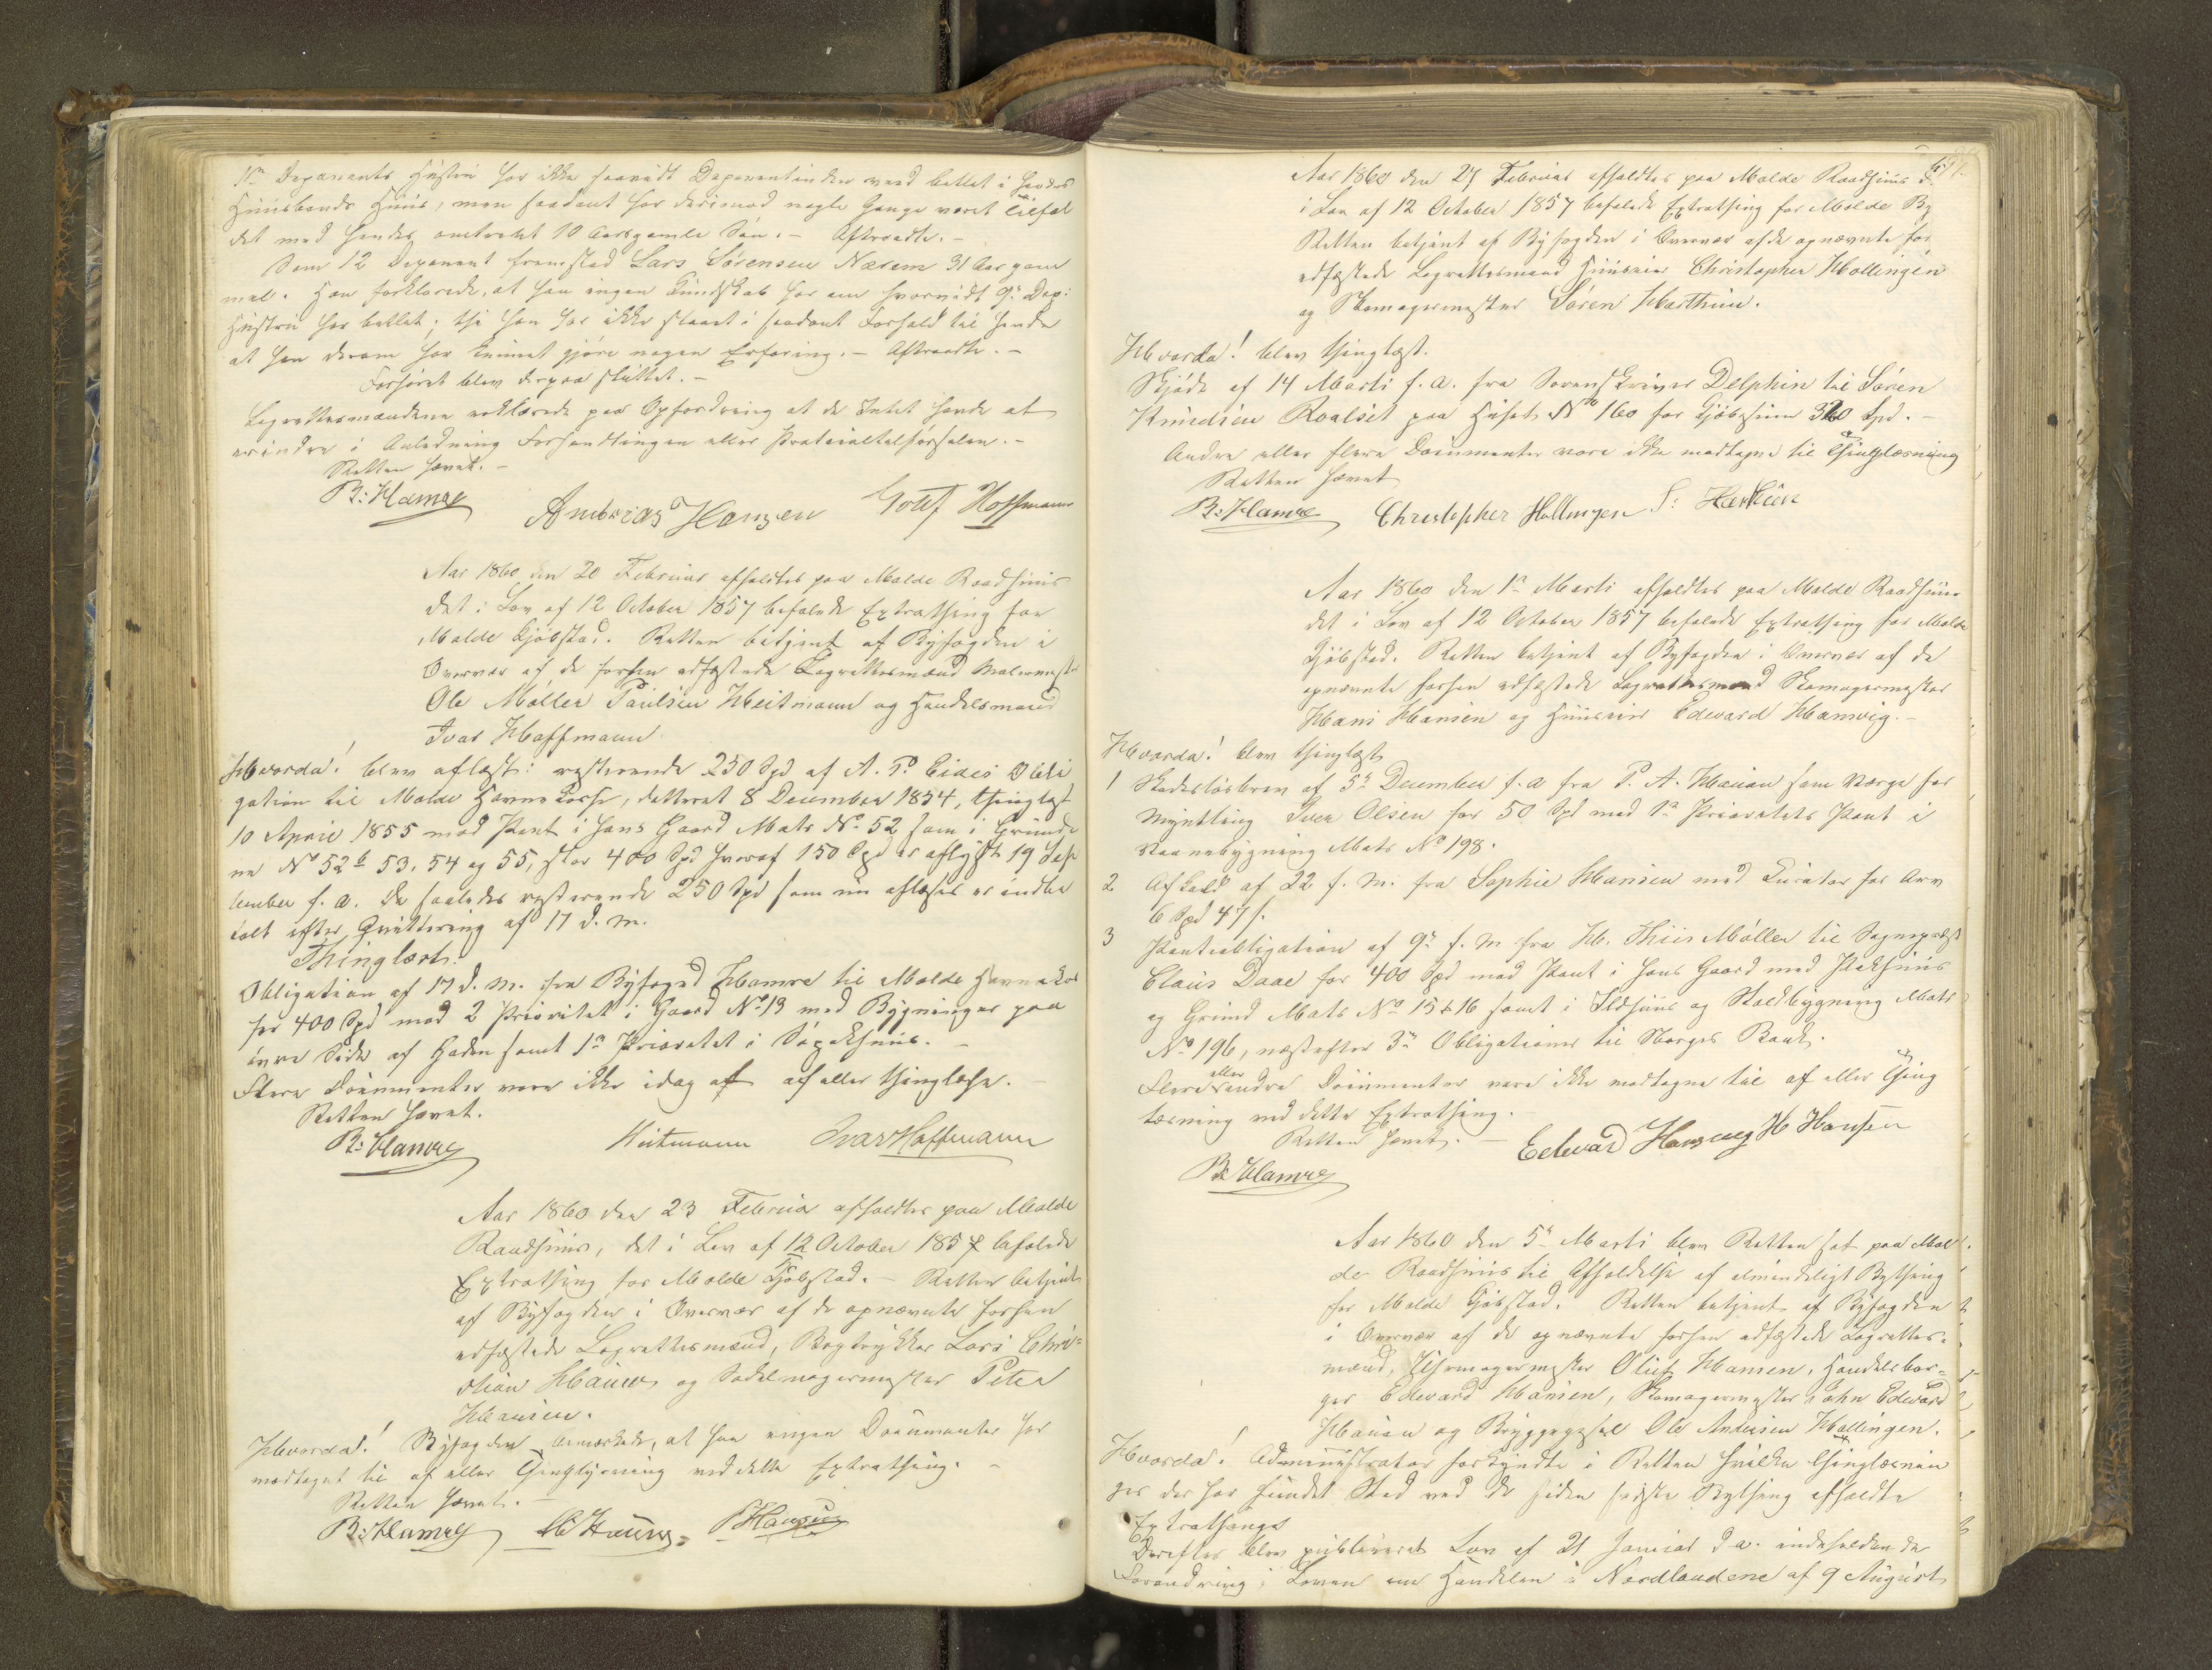 1ste Deponents Hustru har ikke saavidt Deponentinden veed betlet i hendes
Huusbonds Huus, men saadant har derimod nogle Gange været Tilfæl
det med hendes omtrent 10 Aar gamle Søn. – Aftraadte. –
Som 12 Deponent fremstod Lars Sørensen Næsem 31 Aar gam
mel. Han forklarede, at han ingen Kundskab har om hvorvidt 9de Dep:
Hustru har betlet; thi han har ikke staaet i saadant Forhold til hende
at han derom har kunnet gjøre nogen Erfaring. – Aftraadte. –
Forhøret blev derpaa sluttet. –
Lagrettesmændene erklærede paa Opfordring at de Intet havde at
erindre i Anledning Forhandlingen eller Protocoltilførselen. –
Retten hævet. –
B: Hamre Andreas Hansen Hoffmann
Aar 1860 den 20 Februar afholdtes paa Molde Raadhuus
det i Lov af 12 October 1857 befalede Extrathing for
Molde Kjøbstad. Retten betjent af Byfogden i
Overvær af de forhen edfæstede Lagrettesmænd Malermester
Ole Møller Paulsen Heitmann og Handelsmand
Ivar Hoffmann
Hvorda! blev aflæst: resterende 250 Spd af A. P. Eides Obli
gation til Molde Havnekasse, datteret 8 December 1854, thinglæst
10 April 1855 med Pant i hans Gaard Matr No 52 sam i Grunde
ne No 52b 53, 54 og 55, stor 400 Spd hvoraf 150 Spd er aflyst 19 Sep
tember f. a. De saaledes resterende 250 Spd som nu aflæses er indbe
talt efter Qvittering af 17 d. M.
Thinglæst.
Obligation af 17 d. M. fra Byfoged Hamre til Molde Havnekas
for 400 Spd med 2 Prioritet i Gaard No 13 med Bygninger paa
øvre Side af Gaden samt 1ste Prioritet i Søpakhuus. –
Flere Documenter vare ikke idag af af eller thinglæse. –
Retten hævet.
B: Hamre Heitmann Ivar Hoffmann
Aar 1860 den 23 Februar afholdtes paa Molde
Raadhuus, det i Lov af 12 October 1857 befalede
Extrathing for Molde Kjøbstad. – Retten betjent
af Byfogden i Overvær af de opnævnte forhen
edfæstede Lagrettesmænd, Bogtrykker Lars Chri=
stian Hauw og Sadelmagermester Peter
Hansen.
Hvorda! Byfogden bemærkede, at han ingen Documenter har
modtaget til af eller Thinglysning ved dette Extrathing. –
Retten hævet. –
B: Hamre P Hansen
Aar 1860 den 27 Februar afholdtes paa Molde Raadhuus d.
i Lov af 12 October 1857 befalede Extrathing for Molde By
Retten betjent af Byfogden i Overvær af de opnævnte for
edfæstede Lagrettesmænd Huuseier Christopher Hollingen
og Skomagermester Søren Harthun.
Hvorda! blev thinglæst.
Skjøde af 14 Marts f. a. fra Sorenskriver Delphin til Søren
Knudsen Roalset paa Huset No 160 for Kjøbesum 320 Spd. –
Andre eller flere Documenter vare ikke modtagne til Thinglæsning
Retten hævet
B: Hamre Christopher Hollingen S: Harthun
Aar 1860 den 1ste Marts afholdtes paa Molde Raadhuus
det i Lov af 12 October 1857 befalede Extrathing for Molde
Kjøbstad. Retten betjent af Byfogden i Overvær af de
opnævnte forhen edfæstede Lagrettesmænd Skomagermester
Hans Hansen og Huuseier Edevard Hansvig. –
Hvorda! blev thinglæst
1 Skadesløsbrev af 5te December f. a fra P. A. Hansen som Værge for
Myntling Iver Olsen for 50 Spd med 1ste Prioritets Pant i
Vaanebygning Matr No 198.
2 Afkald af 22 f. M. fra Sophie Hansen med Curator for Arv
6 Spd 47 s.
3 Pantobligation af 9de f. M fra H. Thiis Møller til Sognepræst
Claus Daae for 400 Spd med Pant i hans Gaard med Pakhuus
og Grund Matr No 15 & 16 samt i Ildhuus og Staldbygning Matr
No 196, næstefter 3de Obligationer til Norges Bank.
Flere eller andre Documenter vare ikke modtagne til af eller Thing
læsning ved dette Extrathing.
Retten hævet. – Edevard Hansvig H Hansen
B: Hamre
Aar 1860 den 5te Marts blev Retten sat paa Mol
de Raadhuus til Afholdelse af almindeligt Bything
for Molde Kjøbstad. Retten betjent af Byfogden
i Overvær af de opnævnte forhen edfæstede Lagrettes=
mænd, Uhrmagermester Oluf Hansen, Handelsbor=
ger Edevard Hansen, Skomagermester John Edevard
Hansen og Bryggegesel Ole Andersen Hollingen.
Hvorda! Administrator forkyndte i Retten hvilke Thinglæsnin
ger der har fundet Sted ved de siden sidste Bything afholdte
Extrathinge
Derefter blev publiceret Lov af 21 Januar d. a. indeholdende
Forandring i Loven om Handelen i Nordlandene af 9 August